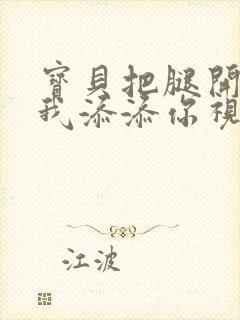 寶貝把腿開
我添添你視
江波